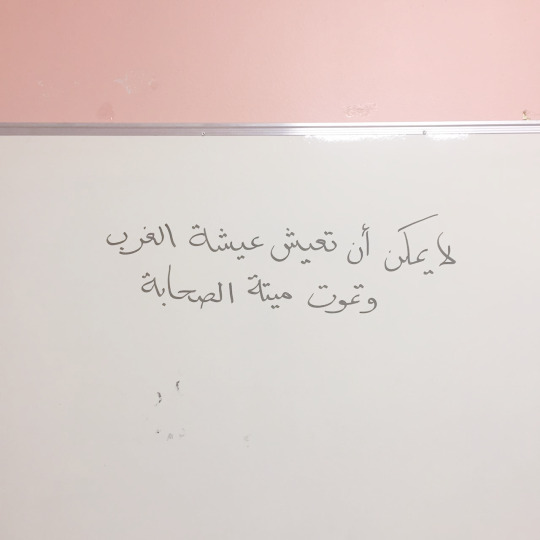 لا يمكن أن تعيش عيشة الغرب
وتموت ميتة الصحابة